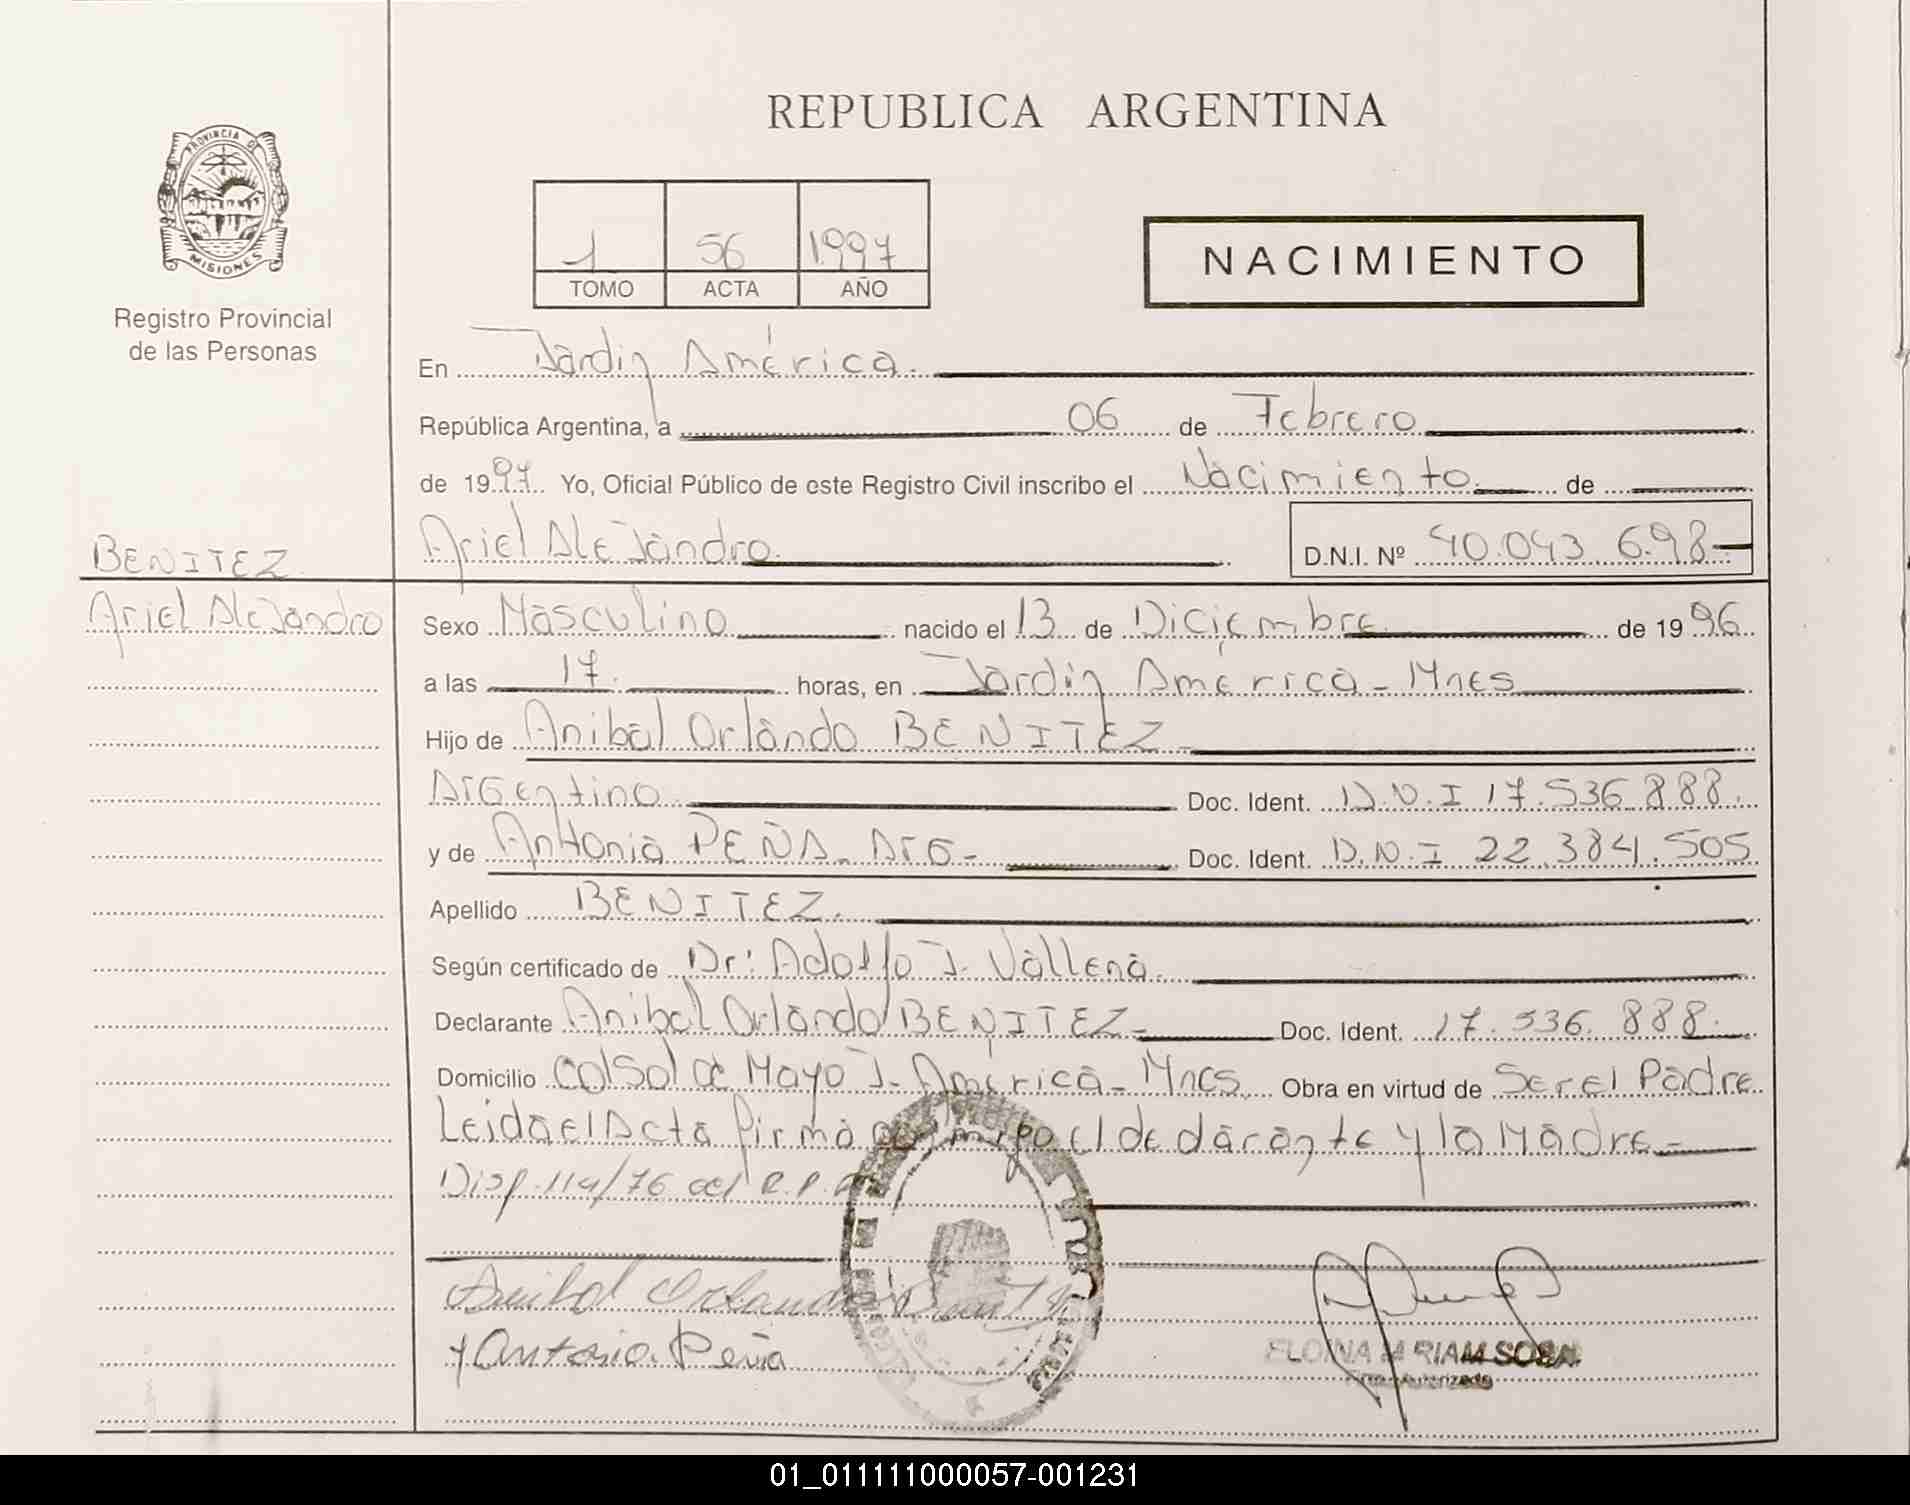 REPUBLICA ARGENTINA
PROVINCIA DE
MISIONES
Registro Provincial
de las Personas
1 56 1997
TOMO ACTA AÑO
NACIMIENTO
En Jardin América.
República Argentina, a 06 de Febrero
de 1997. Yo, Oficial Público de este Registro Civil inscribo el Nacimiento. de
Ariel Alejandro. D.N.I. Nº 40.043.698-
BENITEZ
Ariel Alejandro
Sexo Masculino nacido el 13 de Diciembre de 1996
a las 17. horas, en Jardin América - Mnes
Hijo de Anibal Orlando BENITEZ-
Argentino Doc. Ident. D.N.I 17.536.888.
y de Antonia PEÑA - Arg - Doc. Ident. D.N.I 22.384.505
Apellido BENITEZ.
Según certificado de Dr: Adolfo J. Vallena.
Declarante Anibal Orlando BENITEZ- Doc. Ident. 17.536.888.
Domicilio Col Sol de Mayo J. América - Mnes. Obra en virtud de Ser el Padre
Leida el Acta firma conmigo el declarante y la Madre -
Disp. 114/76 del R.P.
Anibal Orlando Benitez
Antonia Peña
ELOINA MIRIAM SOSA
Autorizada
01_011111000057-001231